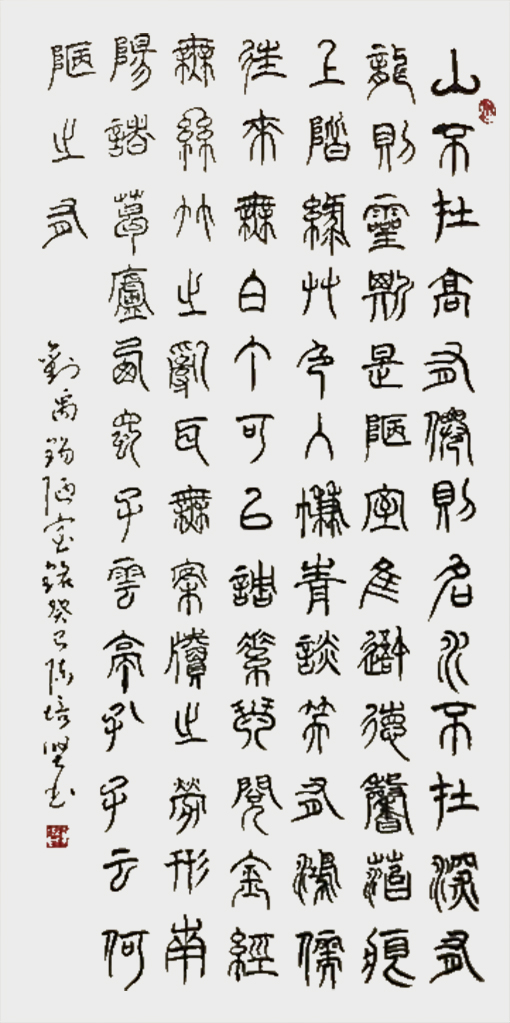 山不在高有僊則名水不在深有
龍則靈斯是陋室隹吾德馨菭痕
上階綠艸色入簾青談笑有鴻儒
往來無白丁可以調素琴閱金經
無絲竹之亂耳無案牘之勞形南
陽諸葛廬西蜀子雲亭孔子云何
陋之有
劉禹錫陋室銘癸巳陈培书